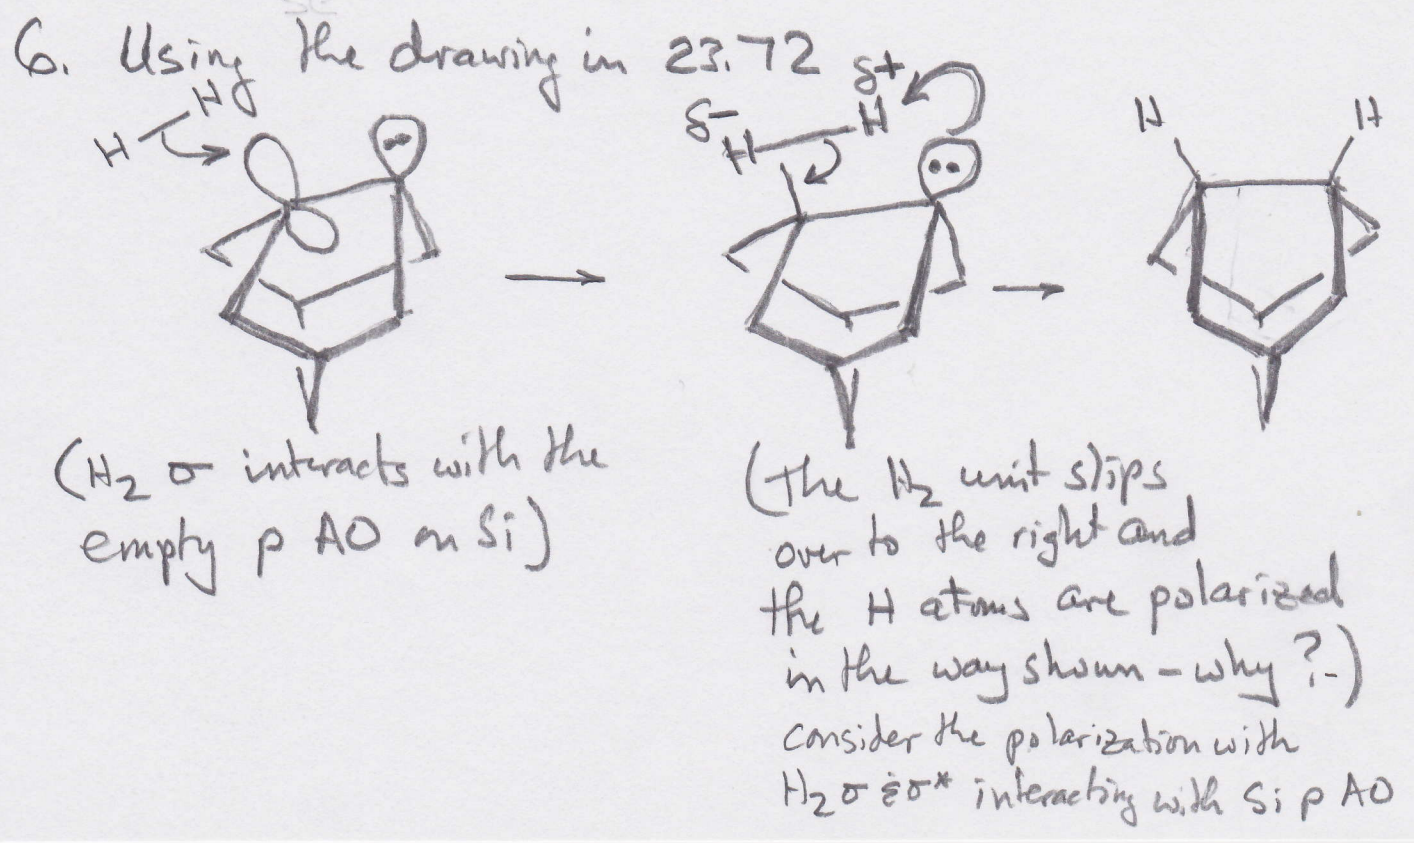 6. Using the drawing in 23.72
H H
δ- H H δ+
H H
(H₂ σ interacts with the
empty p AO on Si)
(The H₂ unit slips
over to the right and
the H atoms are polarized
in the way shown – why?-)
consider the polarization with
H₂ σ & σ* interacting with Si p AO